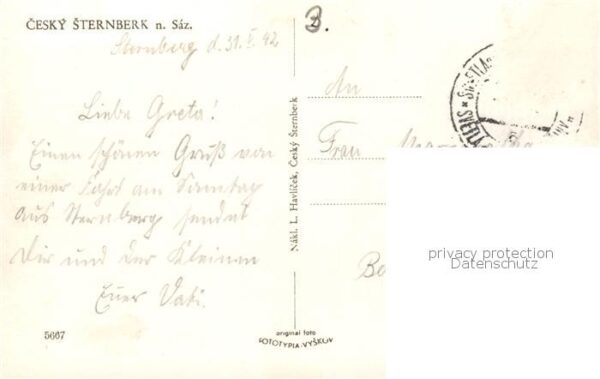 ČESKÝ ŠTERNBERK n. Sáz.
Sternberg d. 31. V. 42
Liebe Greta!
Einen schönen Gruß von
einer Fahrt am Samstag
aus Sternberg sendet
Dir und der Kleinen
Euer Vati.
5667
Nákl. L. Havlíček, Český Šternberk
original foto
FOTOTYPIA-VYŠKOV
An
Frau
privacy protection
Datenschutz